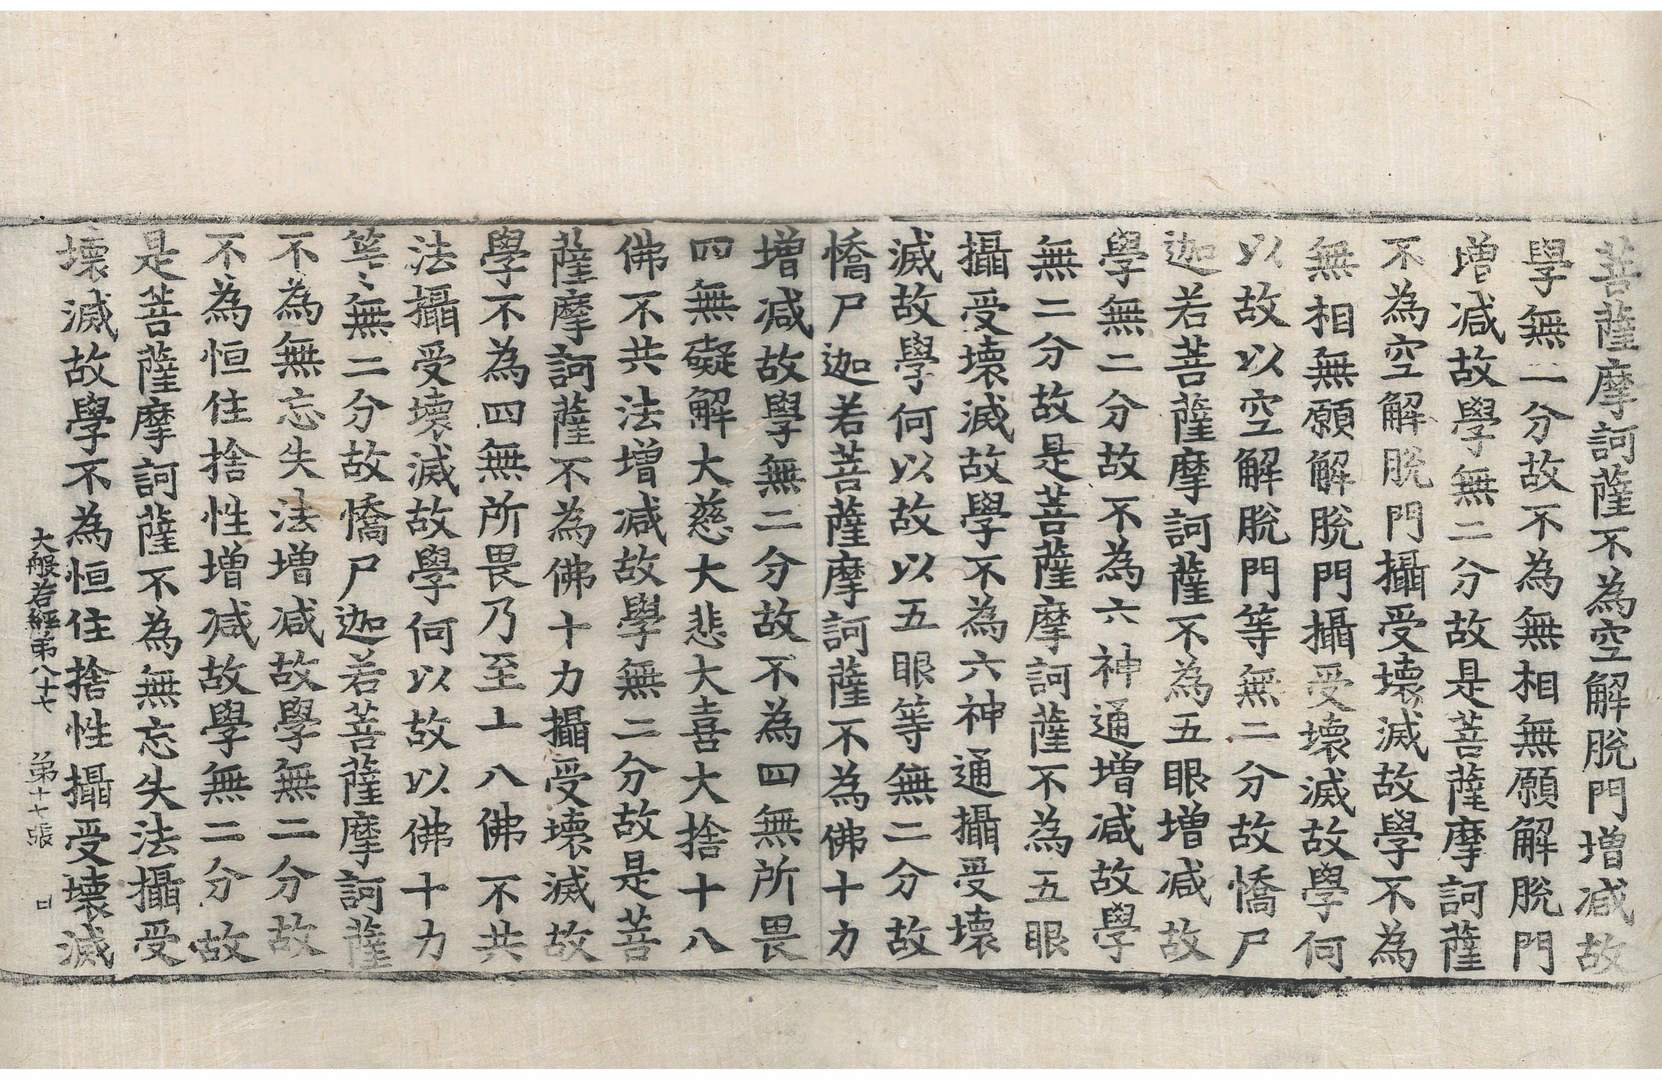 菩薩摩訶薩不為空解脫門增减故
學無二分故不為無相無願解脫門
增减故學無二分故是菩薩摩訶薩
不為空解脫門攝受壞滅故學不為
無相無願解脫門攝受壞滅故學何
以故以空解脫門等無二分故憍尸
迦若菩薩摩訶薩不為五眼增减故
學無二分故不為六神通增减故學
無二分故是菩薩摩訶薩不為五眼
攝受壞滅故學不為六神通攝受壞
滅故學何以故以五眼等無二分故
憍尸迦若菩薩摩訶薩不為佛十力
增减故學無二分故不為四無所畏
四無礙解大慈大悲大喜大捨十八
佛不共法增减故學無二分故是菩
薩摩訶薩不為佛十力攝受壞滅故
學不為四無所畏乃至十八佛不共
法攝受壞滅故學何以故以佛十力
等〻無二分故憍尸迦若菩薩摩訶薩
不為無忘失法增减故學無二分故
不為恒住捨性增减故學無二分故
是菩薩摩訶薩不為無忘失法攝受
壞滅故學不為恒住捨性攝受壞滅
大般若經第八十七 第十七張 日